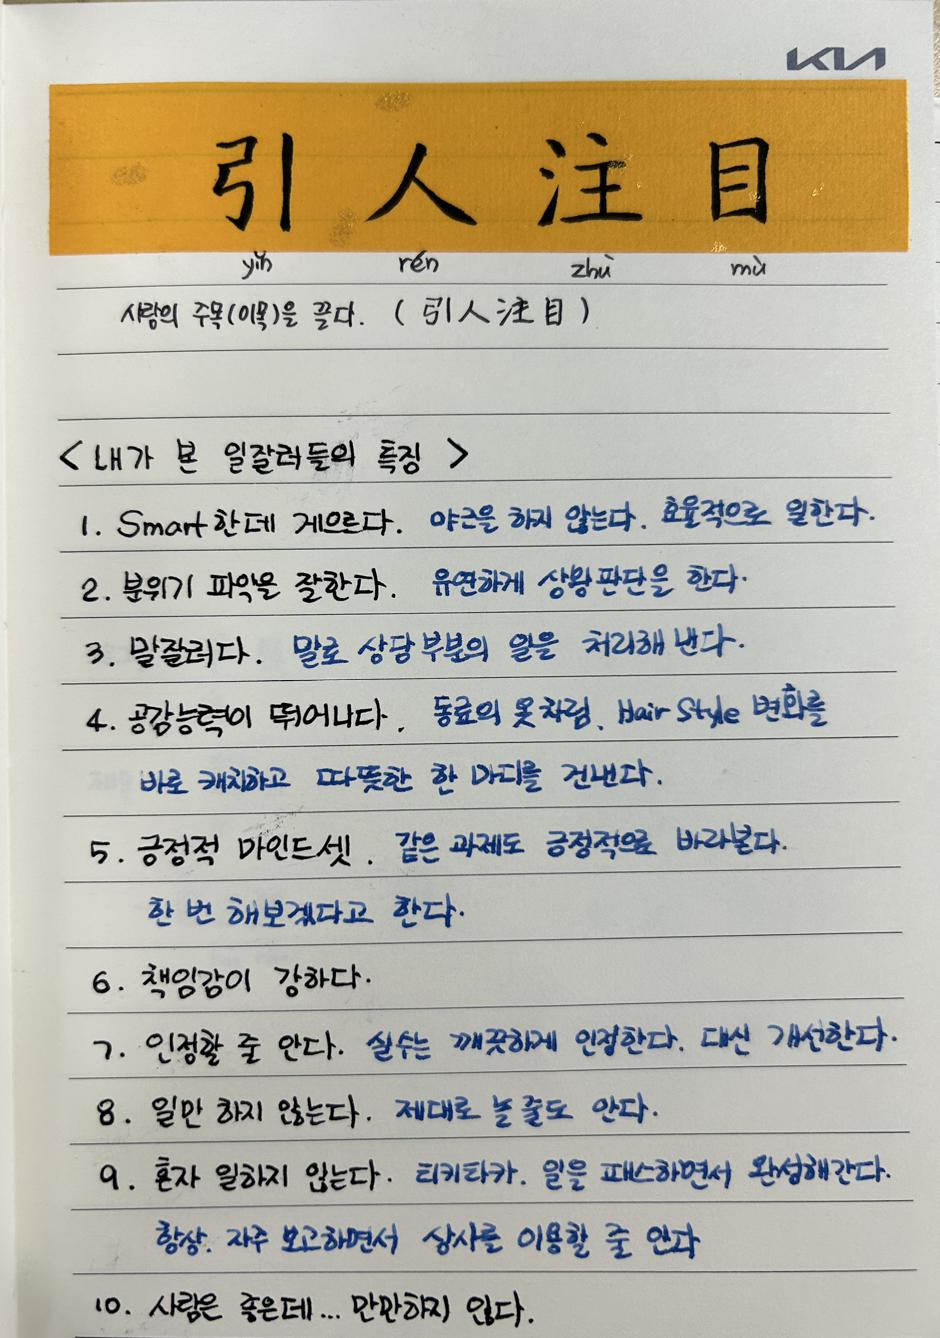 KIA
引人注目
yǐn rén zhù mù
사람의 주목(이목)을 끌다. (引人注目)
<내가 본 일잘러들의 특징>
1. Smart한데 게으르다. 야근을 하지 않는다. 효율적으로 일한다.
2. 분위기 파악을 잘한다. 유연하게 상황판단을 한다.
3. 말잘러다. 말로 상당부분의 일을 처리해낸다.
4. 공감능력이 뛰어나다. 동료의 옷차림, Hair Style 변화를
바로 캐치하고 따뜻한 한 마디를 건낸다.
5. 긍정적 마인드셋. 같은 과제도 긍정적으로 바라본다.
한 번 해보겠다고 한다.
6. 책임감이 강하다.
7. 인정할 줄 안다. 실수는 깨끗하게 인정한다. 대신 개선한다.
8. 일만 하지 않는다. 제대로 놀 줄도 안다.
9. 혼자 일하지 않는다. 티키타카. 일을 패스하면서 완성해간다.
항상. 자주 보고하면서 상사를 이용할 줄 안다
10. 사람은 좋은데... 만만하지 않다.